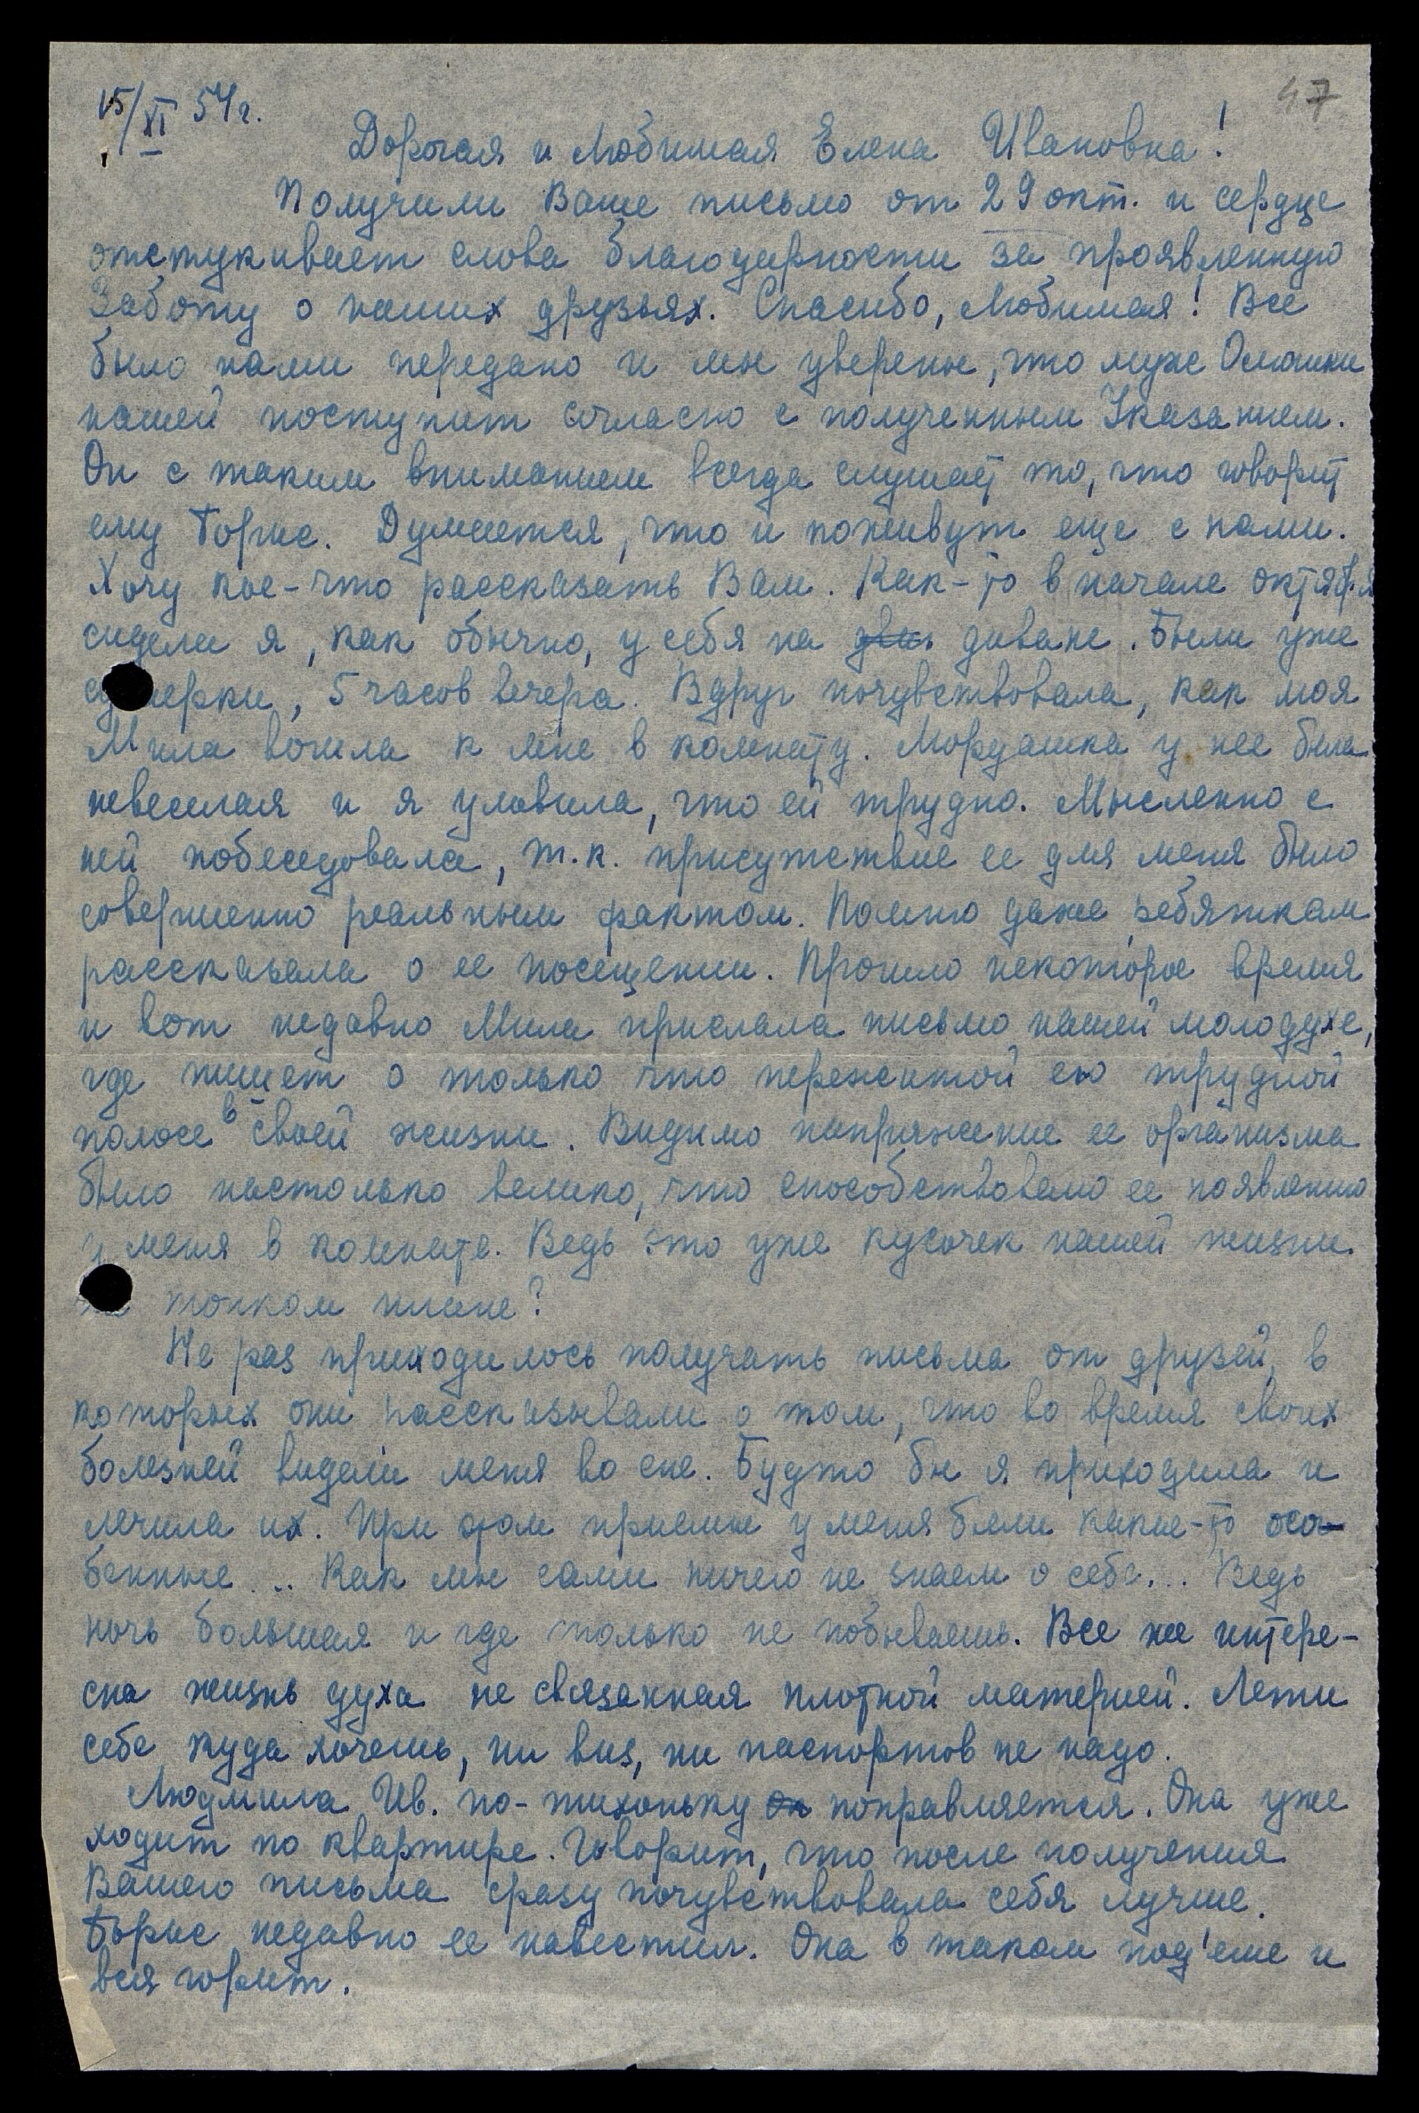 15/XI 54г.
47
Дорогая и Любимая Елена Ивановна!
Получили Ваше письмо от 29 окт. и сердце
отстукивает слова благодарности за проявленную
Заботу о наших друзьях. Спасибо, Любимая! Все
было нами передано и мы уверены, что муж Омошки
нашей поступит согласно с полученным Указанием.
Он с таким вниманием всегда слушает то, что говорит
ему Борис. Думается, что и поживут еще с нами.
Хочу кое-что рассказать Вам. Как-то в начале октября
сидели я, как обычно, у себя на диване. Были уже
сумерки, 5 часов вечера. Вдруг почувствовала, как моя
Мила вошла к мне в комнату. Мордашка у нее была
невеселая и я уловила, что ей трудно. Мысленно с
ней побеседовала, т.к. присутствие ее для меня было
совершенно реальным фактом. Помню даже ребяткам
рассказала о ее посещении. Прошло некоторое время
и вот недавно Мила прислала письмо нашей молодухе,
где пишет о только что пережитой ею трудной
полосе в своей жизни. Видимо напряжение ее организма
было настолько велико, что способствовало ее появлению
у меня в комнате. Ведь это уже кусочек нашей жизни
на тонком плане?
Не раз приходилось получать письма от друзей, в
которых они рассказывали о том, что во время своих
болезней видели меня во сне. Будто бы я приходила и
лечила их. При этом приемы у меня были какие-то осо-
бенные... Как мы сами ничего не знаем о себе... Ведь
ночь большая и где только не побываешь. Все же интере-
сна жизнь духа не связанная плотной материей. Лети
себе куда хочешь, ни виз, ни паспортов не надо.
Людмила Ив. по-тихоньку поправляется. Она уже
ходит по квартире. Говорит, что после получения
Вашего письма сразу почувствовала себя лучше.
Борис недавно ее навестил. Она в таком под'еме и
вся горит.